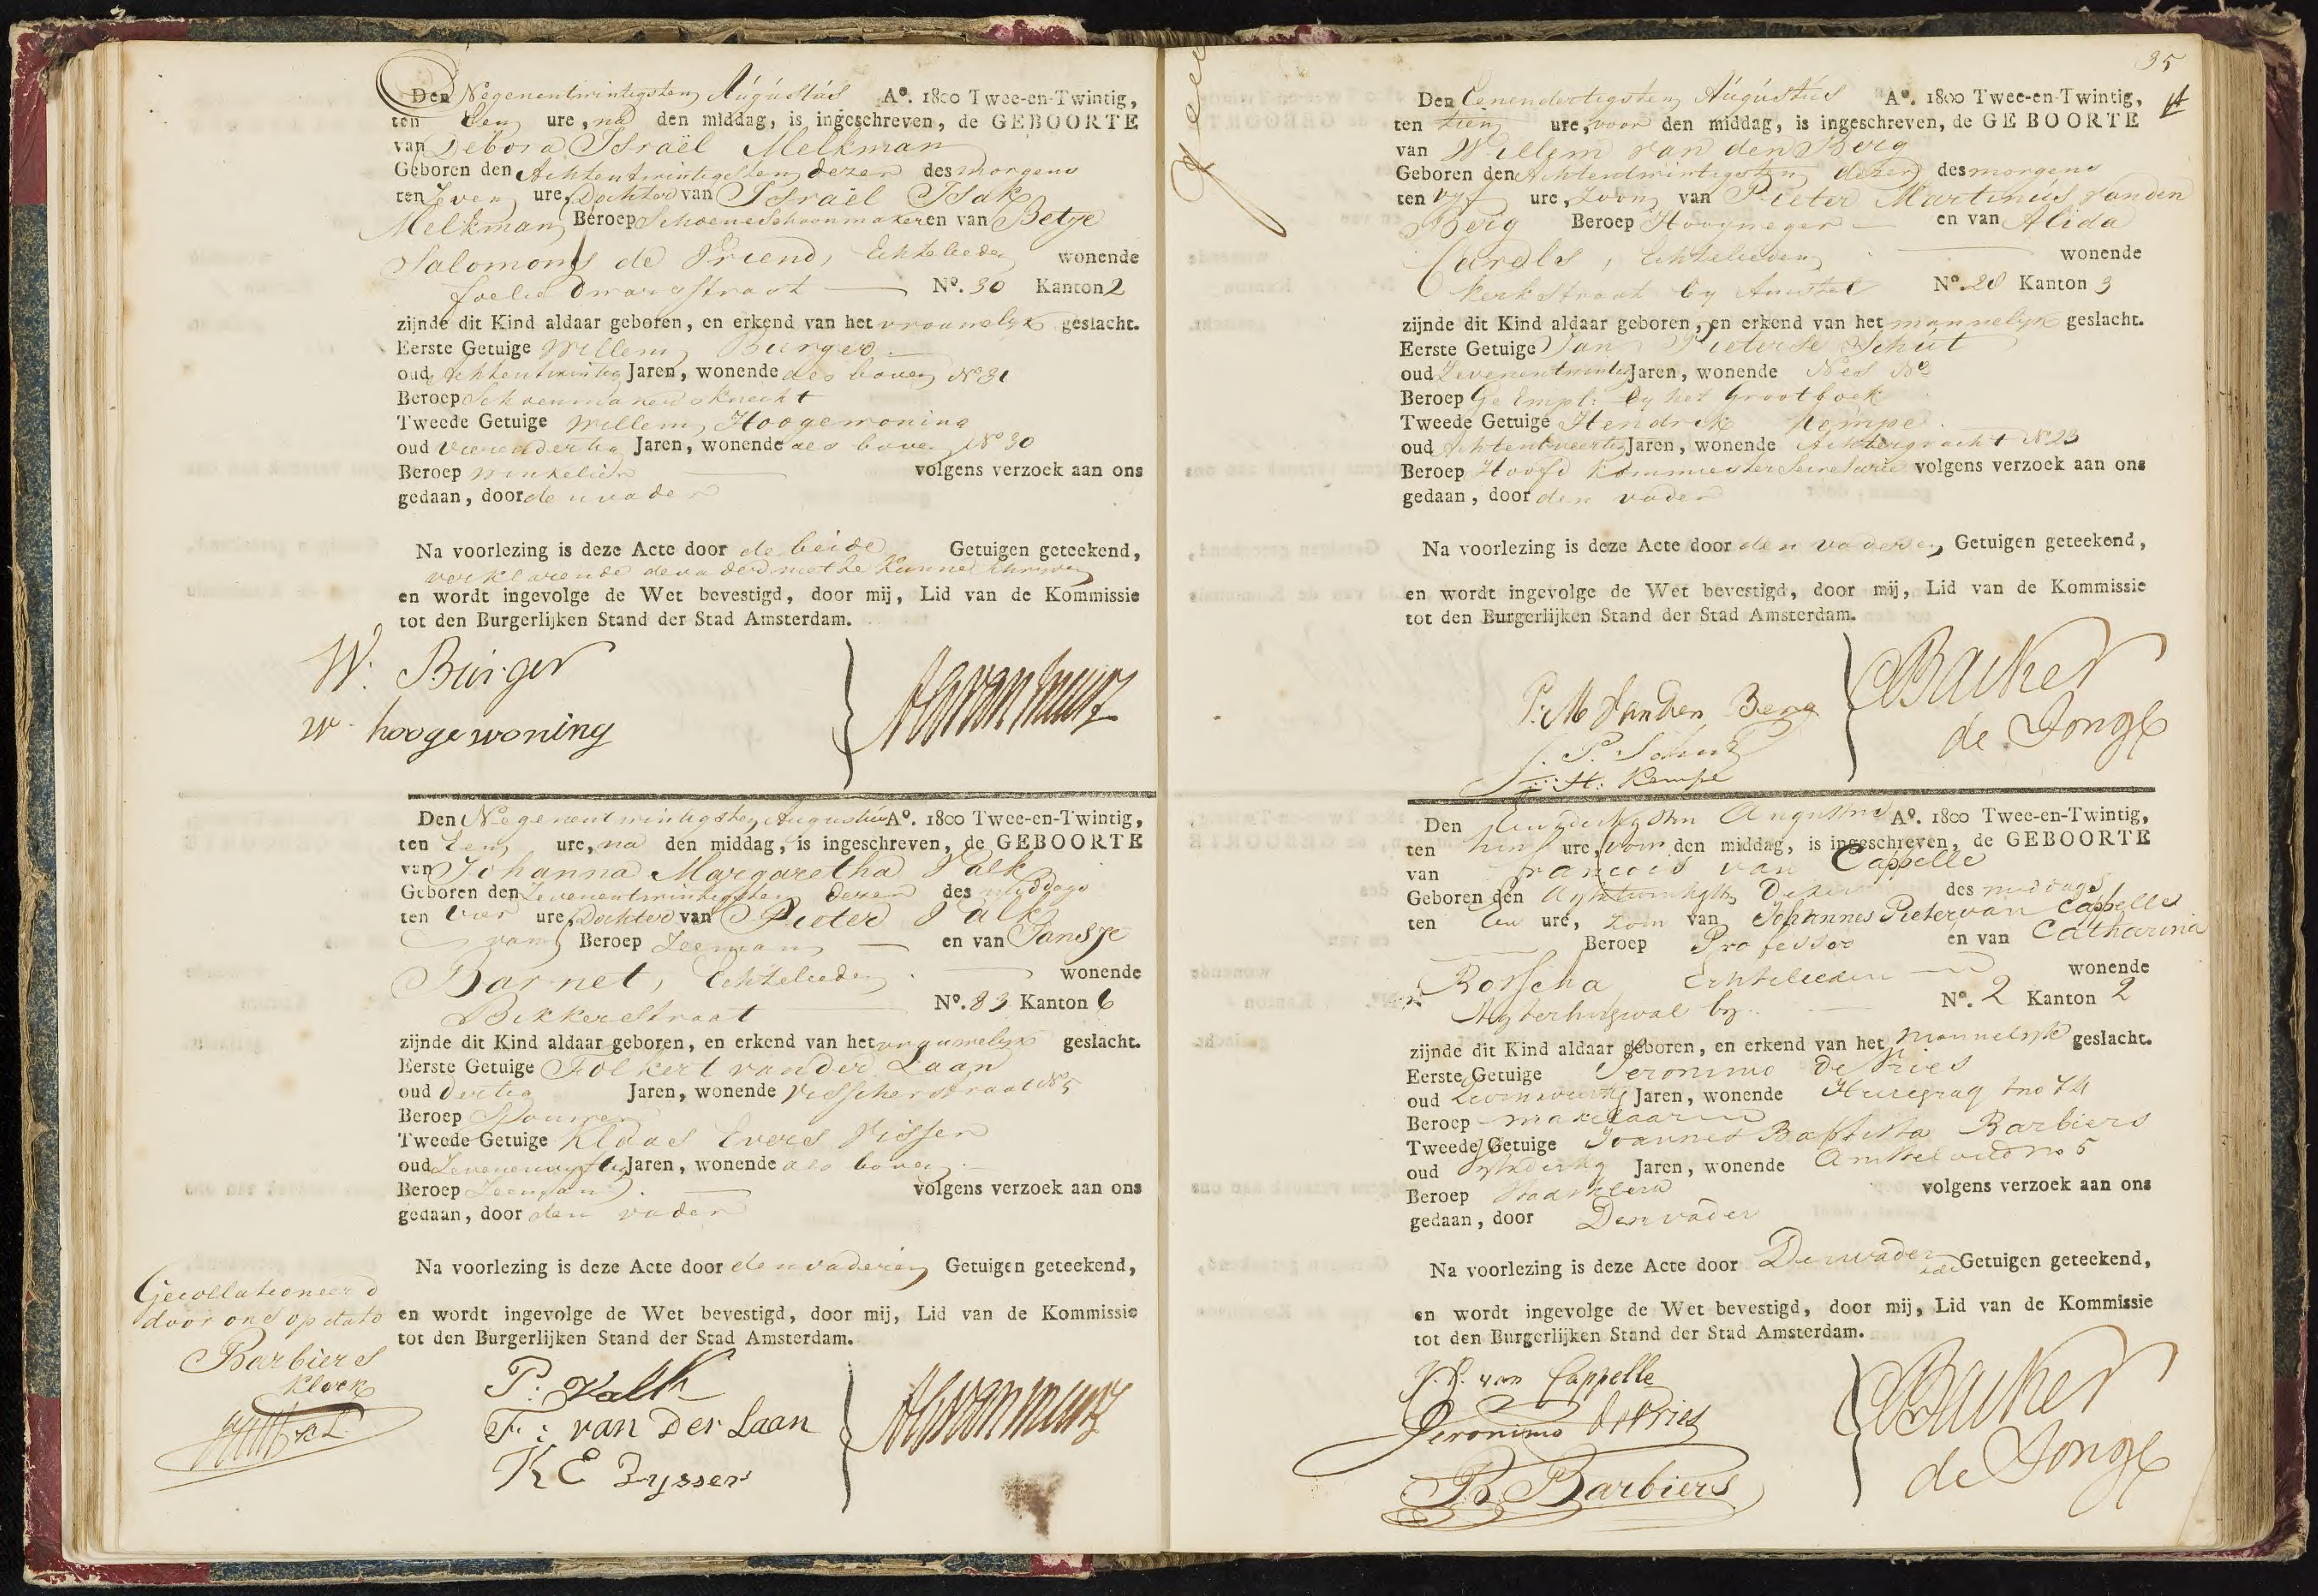 Den Negenentwintigsten Augustus Aº. 1800 Twee-en-Twintig,
ten Een ure, na den middag, is ingeschreven, de GEBOORTE
van Debora Israël Melkman
Geboren den Achtentwintigsten dezer des morgens
ten Zeven ure, Dochter van Israël Isak
Melkman Beroep Schoeneschoonmaker en van Betje
Salomons de Vriend, Echtelieden wonende
foelie dwarsstraat Nº. 30 Kanton 2
zijnde dit Kind aldaar geboren, en erkend van het vrouwelyk geslacht.
Eerste Getuige Willem Burger
oud Achtentwintig Jaren, wonende als boven Nº 31
Beroep Schoenmakersknecht
Tweede Getuige Willem Hoogewoning
oud Vierendertig Jaren, wonende als boven Nº 30
Beroep winkelier volgens verzoek aan ons
gedaan, door den vader
Na voorlezing is deze Acte door de beide Getuigen geteekend,
verklarende de vader niet te kunnen schryven
en wordt ingevolge de Wet bevestigd, door mij, Lid van de Kommissie
tot den Burgerlijken Stand der Stad Amsterdam.
W. Burger
W. hoogewoning
Den Negenentwintigsten Augustus Aº. 1800 Twee-en-Twintig,
ten Een ure, na den middag, is ingeschreven, de GEBOORTE
van Johanna Margaretha Valk
Geboren den Zevenentwintigsten dezer des middags
ten vier ure, Dochter van Pieter Valk
Beroep Zeeman en van Jansje
Barnet, Echtelieden wonende
Bikkerstraat Nº. 83 Kanton 6
zijnde dit Kind aldaar geboren, en erkend van het vrouwelyk geslacht.
Eerste Getuige Folkert van der Laan
oud dertig Jaren, wonende Visscherstraat Nº 5
Beroep Sjouwer
Tweede Getuige Klaas Evers Visser
oud Zevenenvyftig Jaren, wonende als boven
Beroep Zeeman volgens verzoek aan ons
gedaan, door den vader
Na voorlezing is deze Acte door den vader en Getuigen geteekend,
en wordt ingevolge de Wet bevestigd, door mij, Lid van de Kommissie
tot den Burgerlijken Stand der Stad Amsterdam.
Gecollationeerd
door ons op dato
Barbiers
Klerk
P: Valk
F: van Der Laan
K E Zysser
35
Den Eenendertigsten Augustus Aº. 1800 Twee-en-Twintig,
ten tien ure, voor den middag, is ingeschreven, de GEBOORTE
van Willem van den Berg
Geboren den Achtentwintigsten dezer des morgens
ten vyf ure, Zoon van Pieter Martinus van den
Berg Beroep en van Alida
Carols, Echtelieden wonende
Kerkstraat by Amstel Nº. 28 Kanton 3
zijnde dit Kind aldaar geboren, en erkend van het mannelyk geslacht.
Eerste Getuige Jan Pieterse Schut
oud Zevenentwintig Jaren, wonende Nes Nº
Beroep Ge Empl: by het Grootboek
Tweede Getuige Hendrik Kempe
oud Achtentveertig Jaren, wonende Achtergracht Nº 23
Beroep Hoofd Kommies ter Secretarie volgens verzoek aan ons
gedaan, door den vader
Na voorlezing is deze Acte door den vader en Getuigen geteekend,
en wordt ingevolge de Wet bevestigd, door mij, Lid van de Kommissie
tot den Burgerlijken Stand der Stad Amsterdam.
P. M van den Berg
J. P. Schut
H: Kempe
Backer
de Jonge
Den Augustus Aº. 1800 Twee-en-Twintig,
ten tien ure, voor den middag, is ingeschreven, de GEBOORTE
van francois van Cappelle
Geboren den Agtentwintigsten Dezer des middags
ten een ure, zoon van Johannes Pieter van Cappelle
Beroep Professor en van Catharina
Bosscha Echtelieden wonende
Agterburgwal by Nº. 2 Kanton 2
zijnde dit Kind aldaar geboren, en erkend van het mannelyk geslacht.
Eerste Getuige Jeronimo De Vries
oud Jaren, wonende Heeregragt no 74
Beroep makelaar
Tweede Getuige Joannes Baptista Barbiers
oud Jaren, wonende Amstelveld no 5
Beroep Stadsklerk volgens verzoek aan ons
gedaan, door Den vader
Na voorlezing is deze Acte door Den vader Getuigen geteekend,
en wordt ingevolge de Wet bevestigd, door mij, Lid van de Kommissie
tot den Burgerlijken Stand der Stad Amsterdam.
J. P. van Cappelle
Jeronimo de Vries
B. Barbiers
Backer
de Jonge